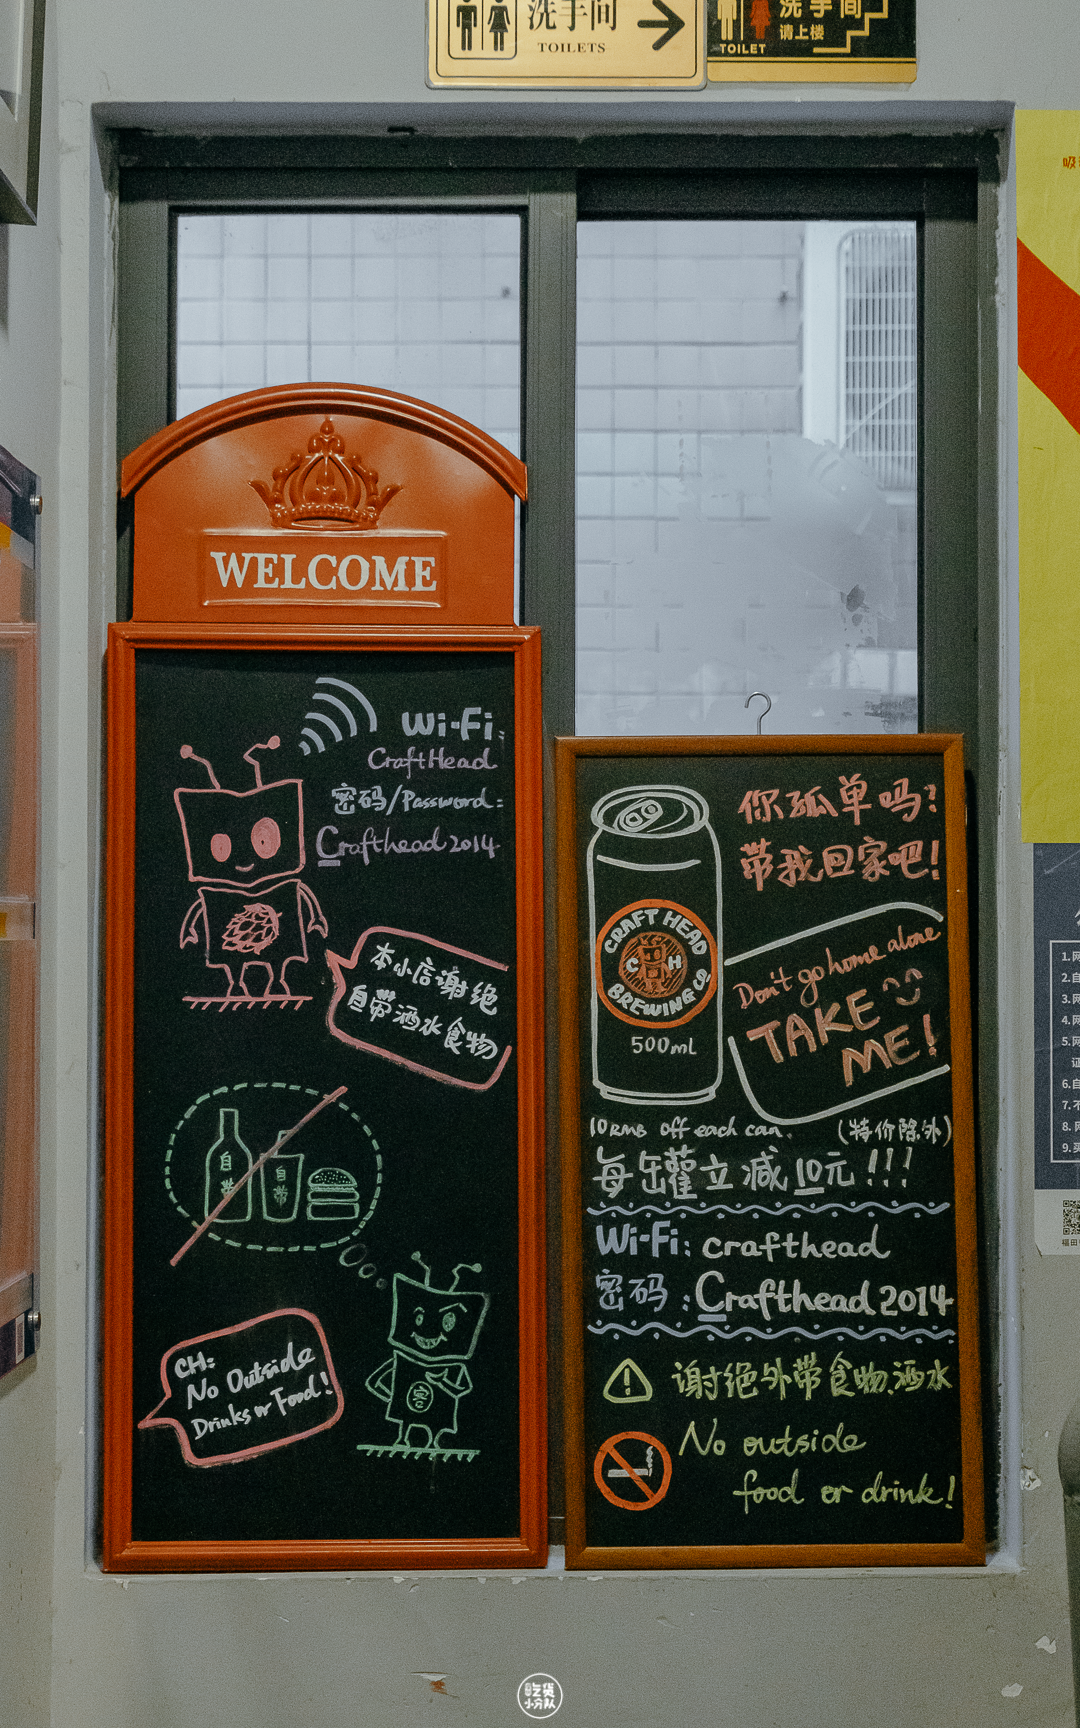 洗手间
TOILETS
洗手间
请上楼
TOILET
WELCOME
Wi-Fi:
CraftHead
密码/Password:
Crafthead2014
本小店谢绝
自带酒水食物
自带
自带
CH:
No Outside
Drinks or Food!
客
你孤单吗?
带我回家吧!
CRAFT HEAD
C H
BREWING CO
500mL
Don't go home alone
TAKE
ME!
10RMB off each can. (特价除外)
每缶罐立减10元!!!
Wi-Fi: crafthead
密码:Crafthead2014
谢绝外带食物、酒水
No outside
food or drink!
吃货
小分队